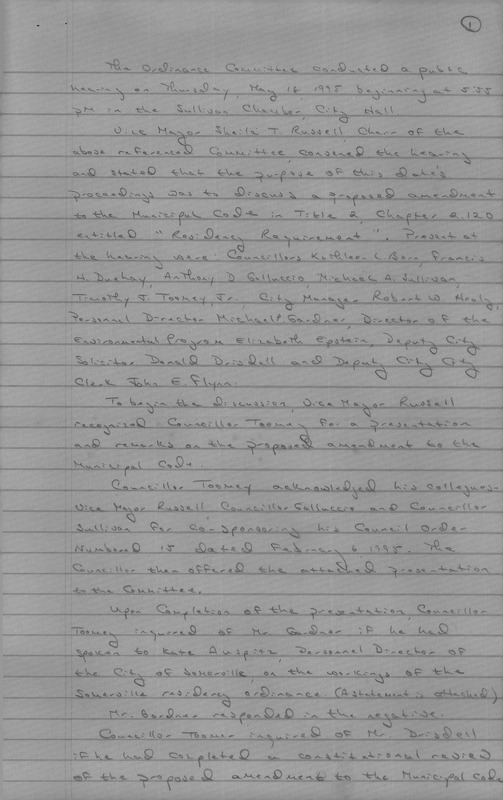 1
The Ordinance Committee conducted a public
hearing on Thursday, May 18, 1995 beginning at 5:55
PM in the Sullivan Chamber, City Hall.
Vice Mayor Sheila T. Russell, Chair of the
above referenced Committee, convened the hearing
and stated that the purpose of this date's
proceedings was to discuss a proposed amendment
to the Municipal Code in Title 2, Chapter 2.120
entitled "Residency Requirement". Present at
the hearing were: Councillors Kathleen L. Born, Francis
H. Duehay, Anthony D. Galluccio, Michael A. Sullivan,
Timothy J. Toomey, Jr., City Manager Robert W. Healy,
Personnel Director Michael Gardner, Director of the
Environmental Program Elizabeth Epstein, Deputy City
Solicitor Donald Drisdell and Deputy City City
Clerk John E. Flynn.
To begin the discussion, Vice Mayor Russell
recognized Councillor Toomey for a presentation
and remarks on the proposed amendment to the
Municipal Code.
Councillor Toomey acknowledged his collegues-
Vice Mayor Russell, Councillor Galluccio and Councillor
Sullivan for co-sponsoring his Council Order
Numbered 15 dated February 6 1995. The
Councillor then offered the attached presentation
to the Committee.
Upon completion of the presentation, Councillor
Toomey inquired of Mr. Gardner if he had
spoken to Kate Auspitz, Personnel Director of
the City of Somerville, on the workings of the
Somerville residency ordinance. (A statement is attached)
Mr. Gardner responded in the negative.
Councillor Toomey inquired of Mr. Drisdell
if he had completed a constitutional review
of the proposed amendment to the Municipal Code